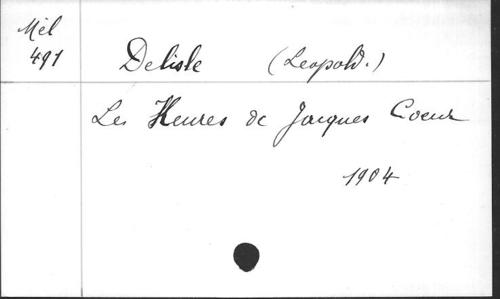 Mél
491
Delisle (Leopold.)
Les Heures de Jacques Coeur
1904